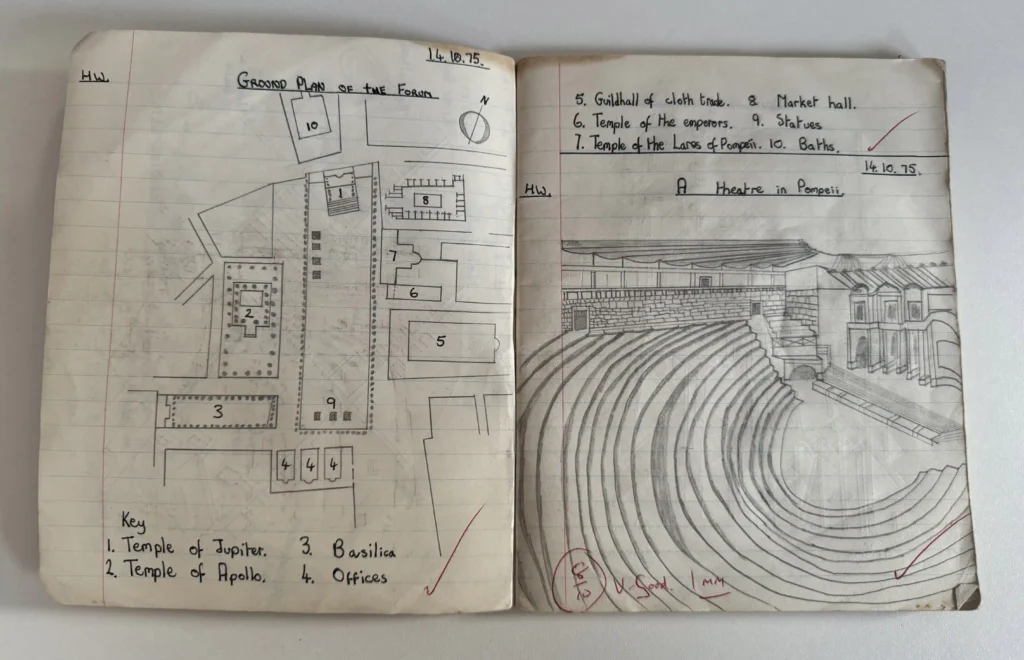 14.10.75.
HW.
GROUND PLAN OF THE FORUM
N
10
1
8
7
2
6
5
3
9
4 4 4
Key
1. Temple of Jupiter. 3. Basilica
2. Temple of Apollo. 4. Offices
5. Guildhall of cloth trade. 8 Market hall.
6. Temple of the emperors. 9. Statues
7. Temple of the Lares of Pompeii. 10. Baths.
14.10.75.
HW.
A theatre in Pompeii.
V. Good. 1 MM